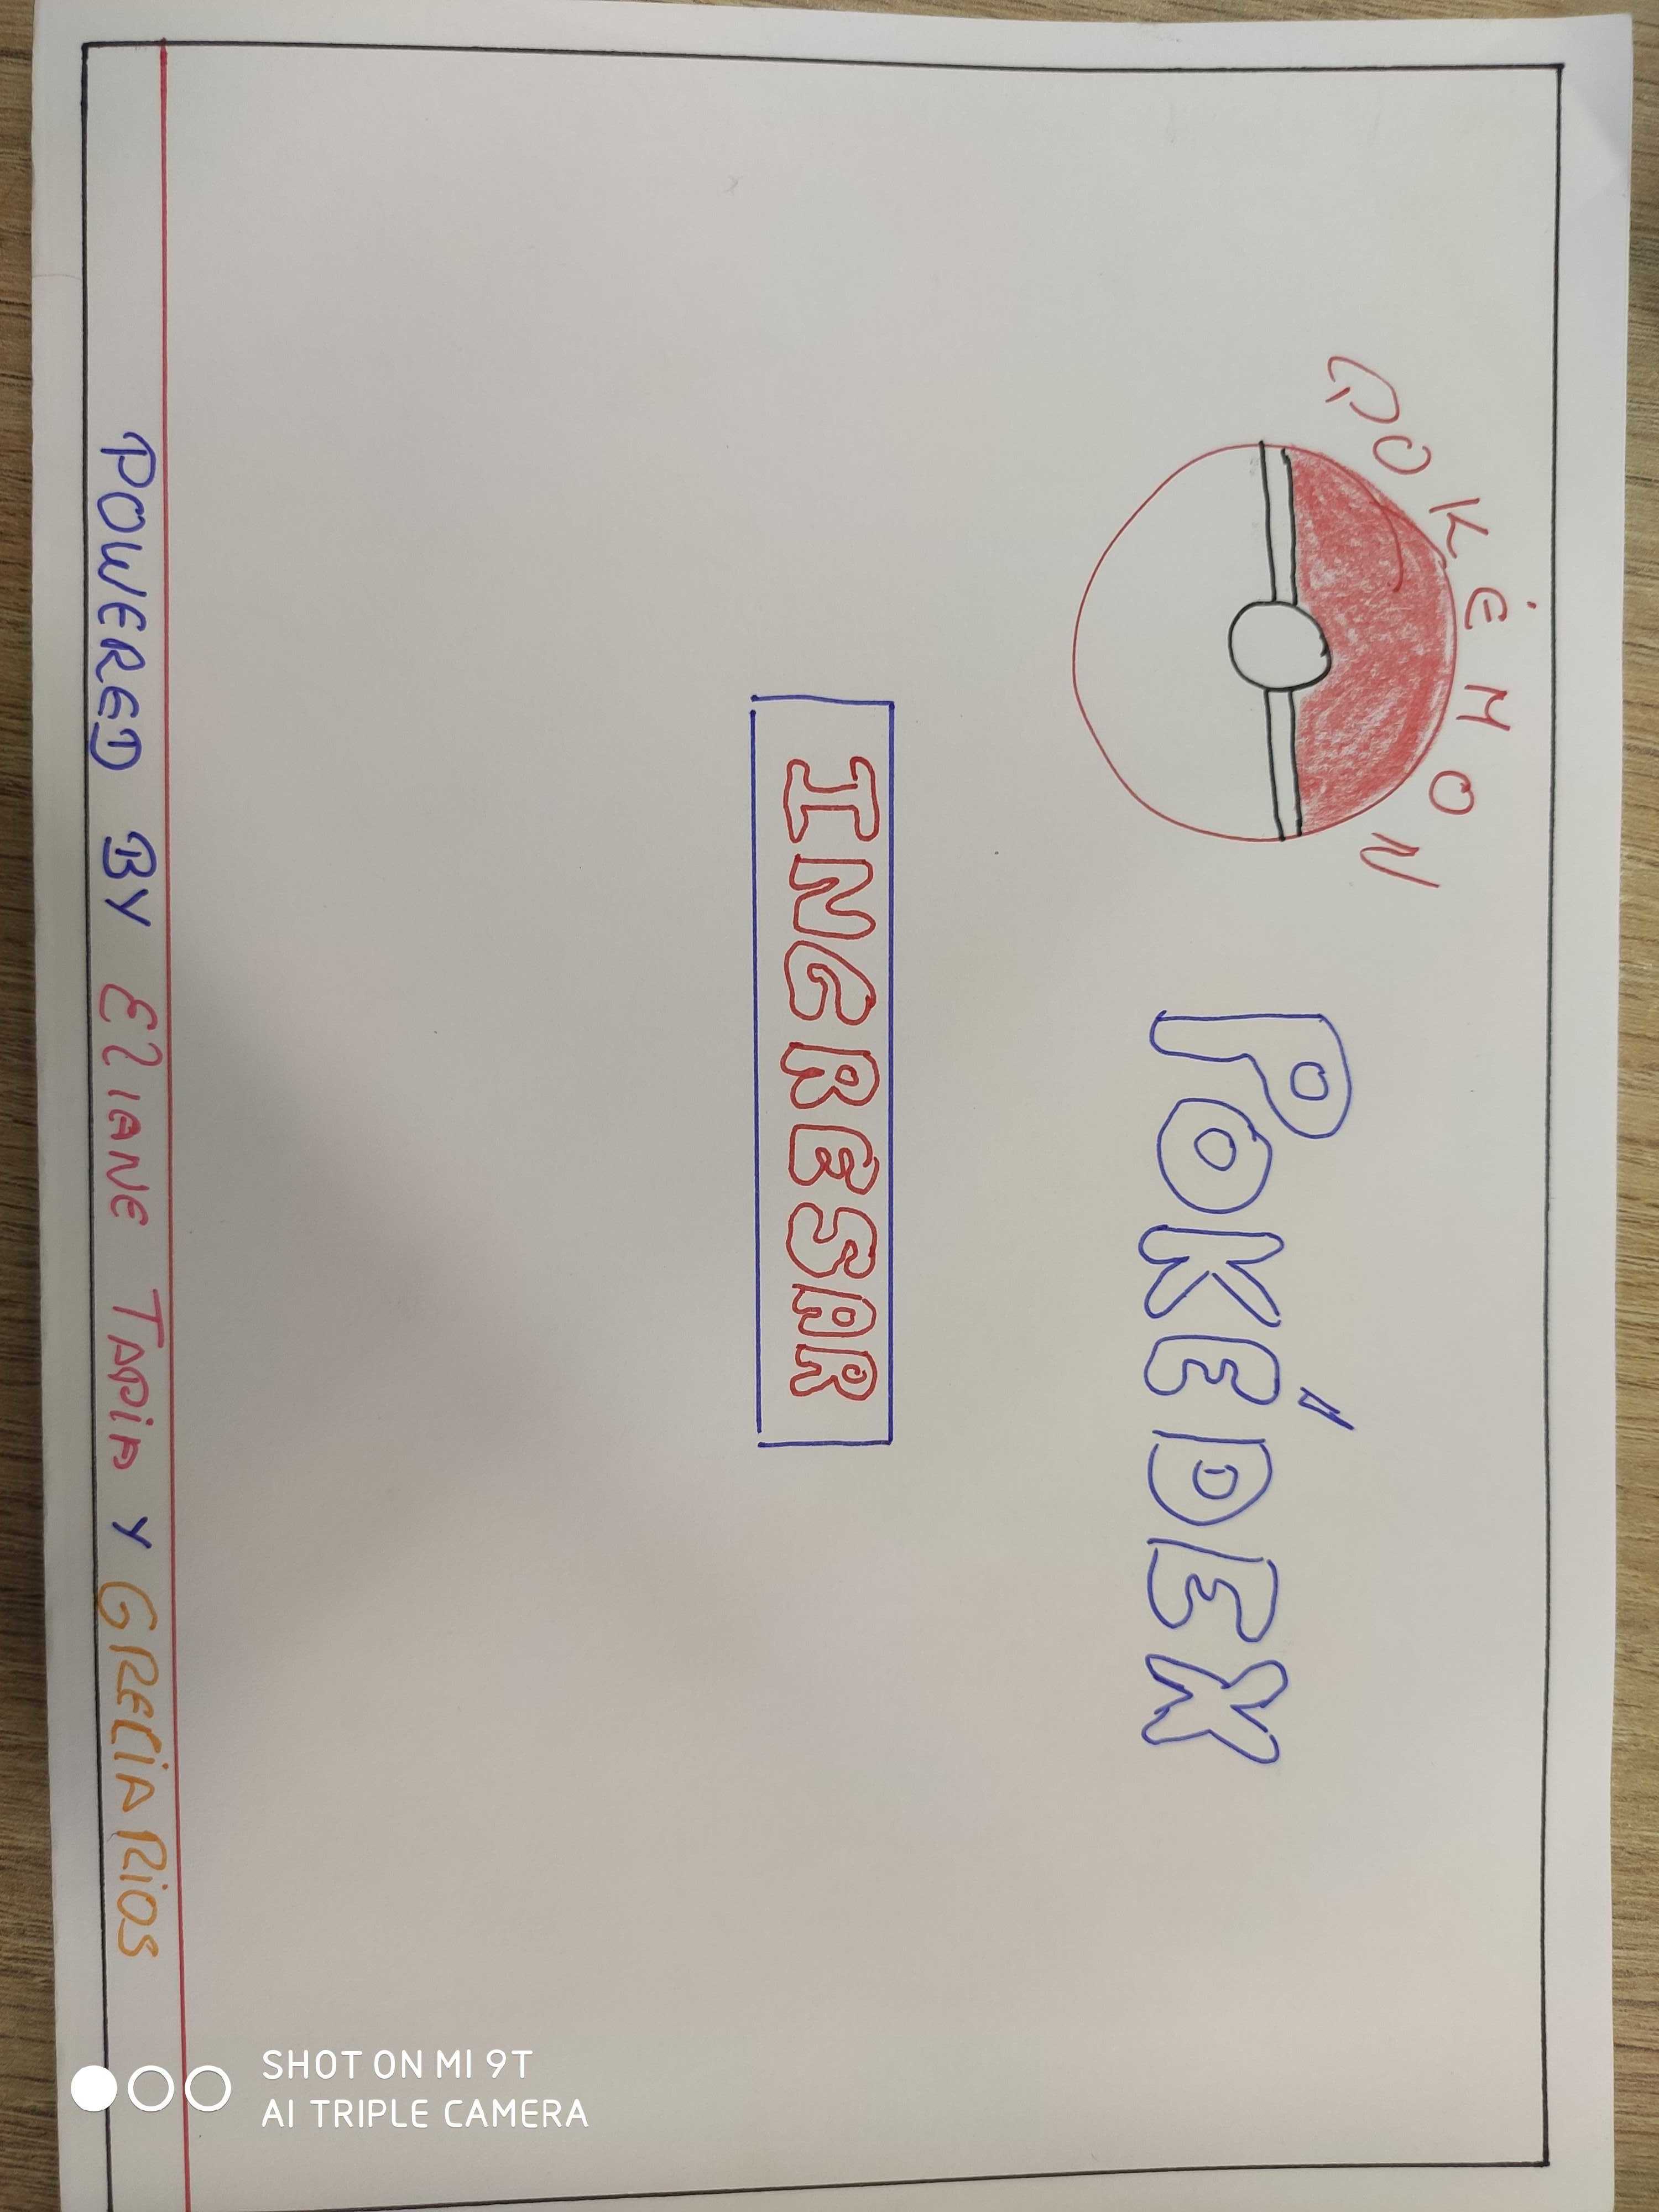 POKÉMON
POKÉDEX
INGRESAR
POWERED BY ELIANE TAPIA Y GRECIA RIOS
SHOT ON MI 9T
AI TRIPLE CAMERA